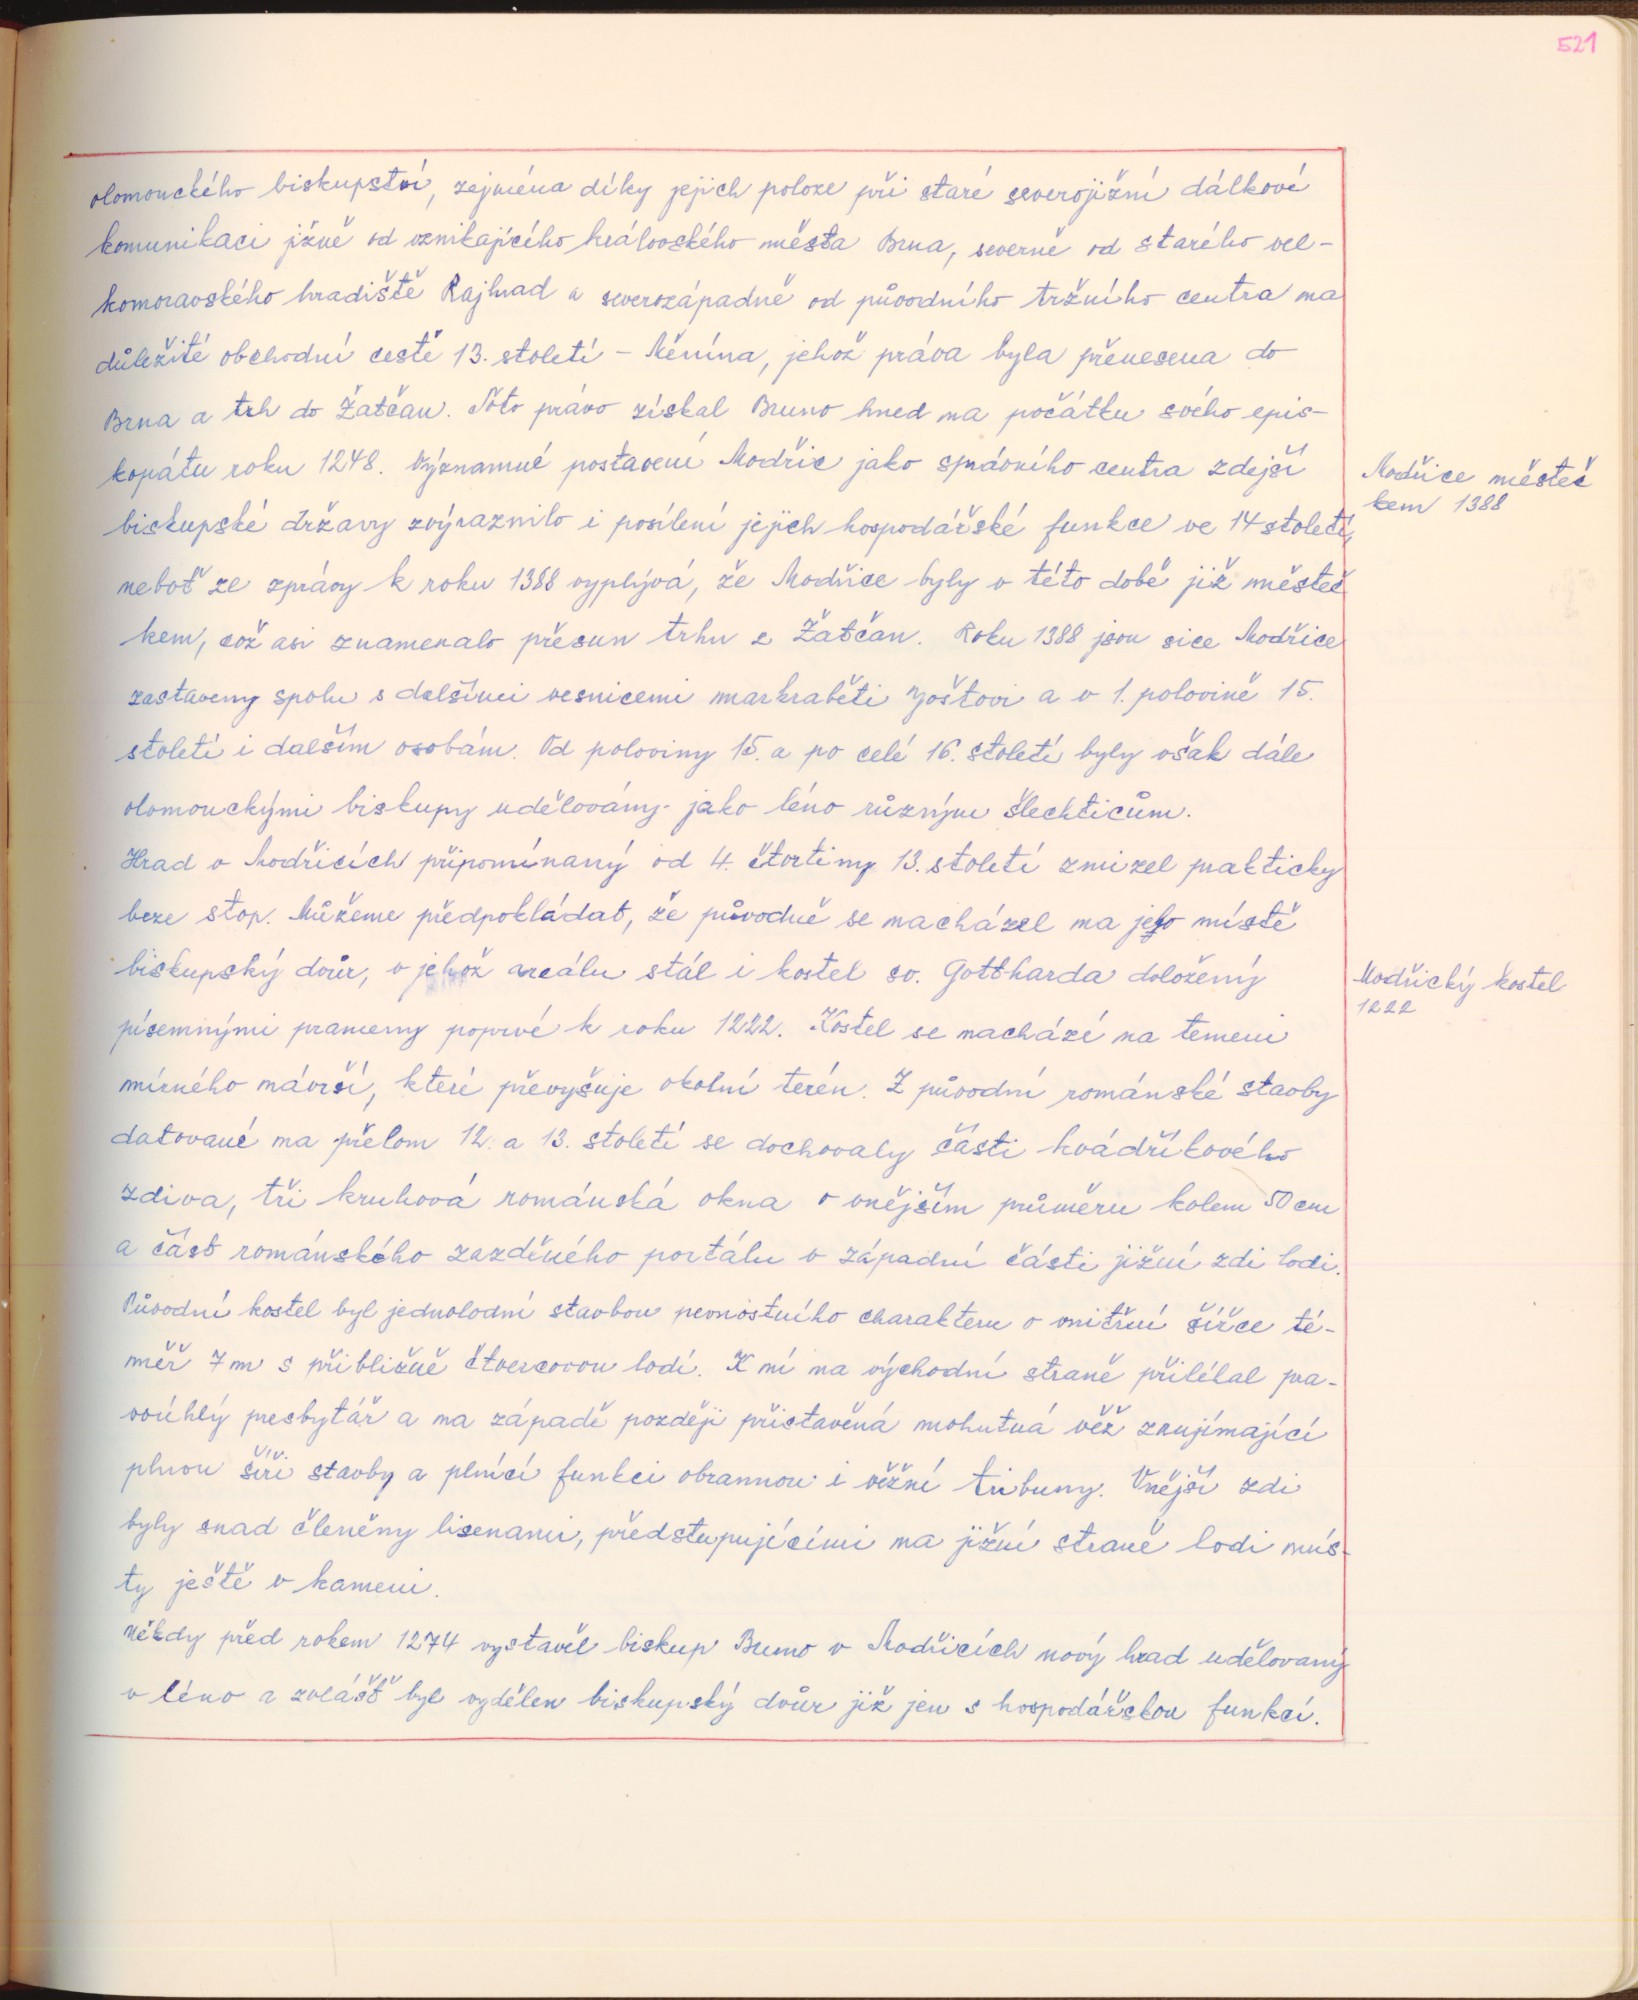 521
olomouckého biskupství, zejména díky jejich poloze při staré severojižní dálkové
komunikaci jižně od vznikajícího královského města Brna, severně od starého vel-
komoravského hradiště Rajhrad a severozápadně od původního tržního centra na
důležité obchodní cestě 13. století – Měnína, jehož práva byla přenesena do
Brna a trh do Žatčan. Toto právo získal Bruno hned na počátku svého epis-
kopátu roku 1248. Významné postavení Modřic jako správního centra zdejší
Modřice městeč
kem 1388
biskupské državy zvýraznilo i posílení jejich hospodářské funkce ve 14 století,
neboť ze zprávy k roku 1388 vyplývá, že Modřice byly v této době již městeč
kem, což asi znamenalo přesun trhu z Žatčan. Roku 1388 jsou sice Modřice
zastaveny spolu s dalšími vesnicemi markraběti Joštovi a v 1. polovině 15.
století i dalším osobám. Od poloviny 15. a po celé 16. století byly však dále
olomouckými biskupy udělovány jako léno různým šlechticům.
Hrad v Modřicích připomínaný od 4. čtvrtiny 13. století zmizel prakticky
beze stop. Můžeme předpokládat, že původně se nacházel na jeho místě
biskupský dvůr, v jehož areálu stál i kostel sv. Gottharda doložený
Modřický kostel
1222
písemnými prameny poprvé k roku 1222. Kostel se nachází na temeni
mírného návrší, které převyšuje okolní terén. Z původní románské stavby
datované na přelom 12. a 13. století se dochovaly části kvádříkového
zdiva, tři kruhová románská okna o vnějším průměru kolem 50 cm
a část románského zazděného portálu v západní části jižní zdi lodi.
Původní kostel byl jednolodní stavbou pevnostního charakteru o vnitřní šířce té-
měř 7 m s přibližně čtvercovou lodí. K ní na východní straně přiléhal pra-
voúhlý presbytář a na západě později přistavěná mohutná věž zaujímající
plnou šíři stavby a plnící funkci obrannou i věžní tribuny. Vnější zdi
byly snad členěny lisenami, předstupujícími na jižní straně lodi mís-
ty ještě v kameni.
Někdy před rokem 1274 vystavěl biskup Bruno v Modřicích nový hrad udělovaný
v léno a zvlášť byl vydělen biskupský dvůr již jen s hospodářskou funkcí.